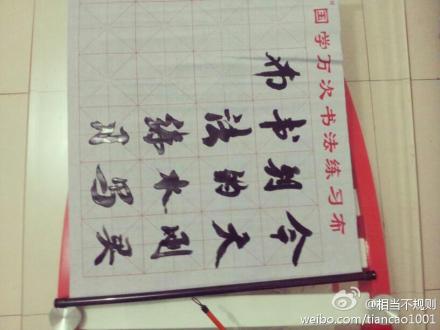 国学万次书法练习布
今天刚买
到的水写
书法练习
布
@相当不规则
weibo.com/tiancao1001